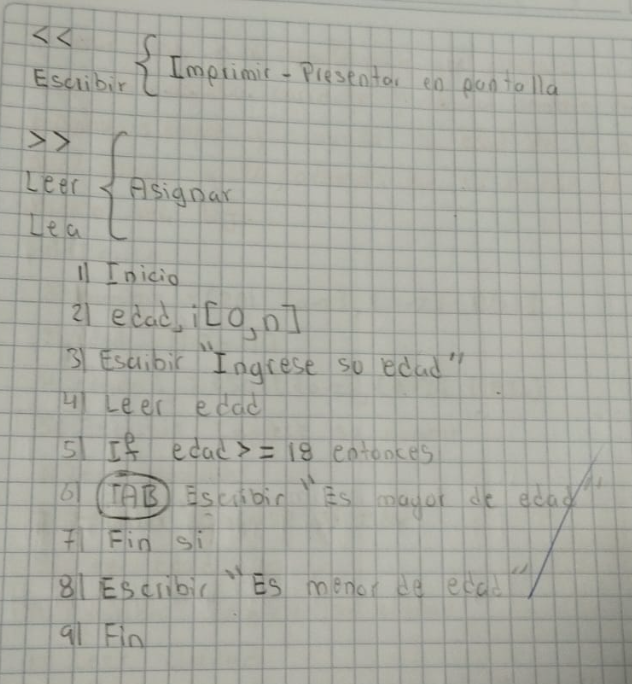 <<
Escribir { Imprimir - Presentar en pantalla
>>
Leer { Asignar
Lea
1) Inicio
2) edad, i[0,n]
3) Escribir "Ingrese so edad"
4) Leer edad
5) If edad >= 18 entonces
6) TAB Escribir "Es mayor de edad"
7) Fin si
8) Escribir "Es menor de edad"
9) Fin